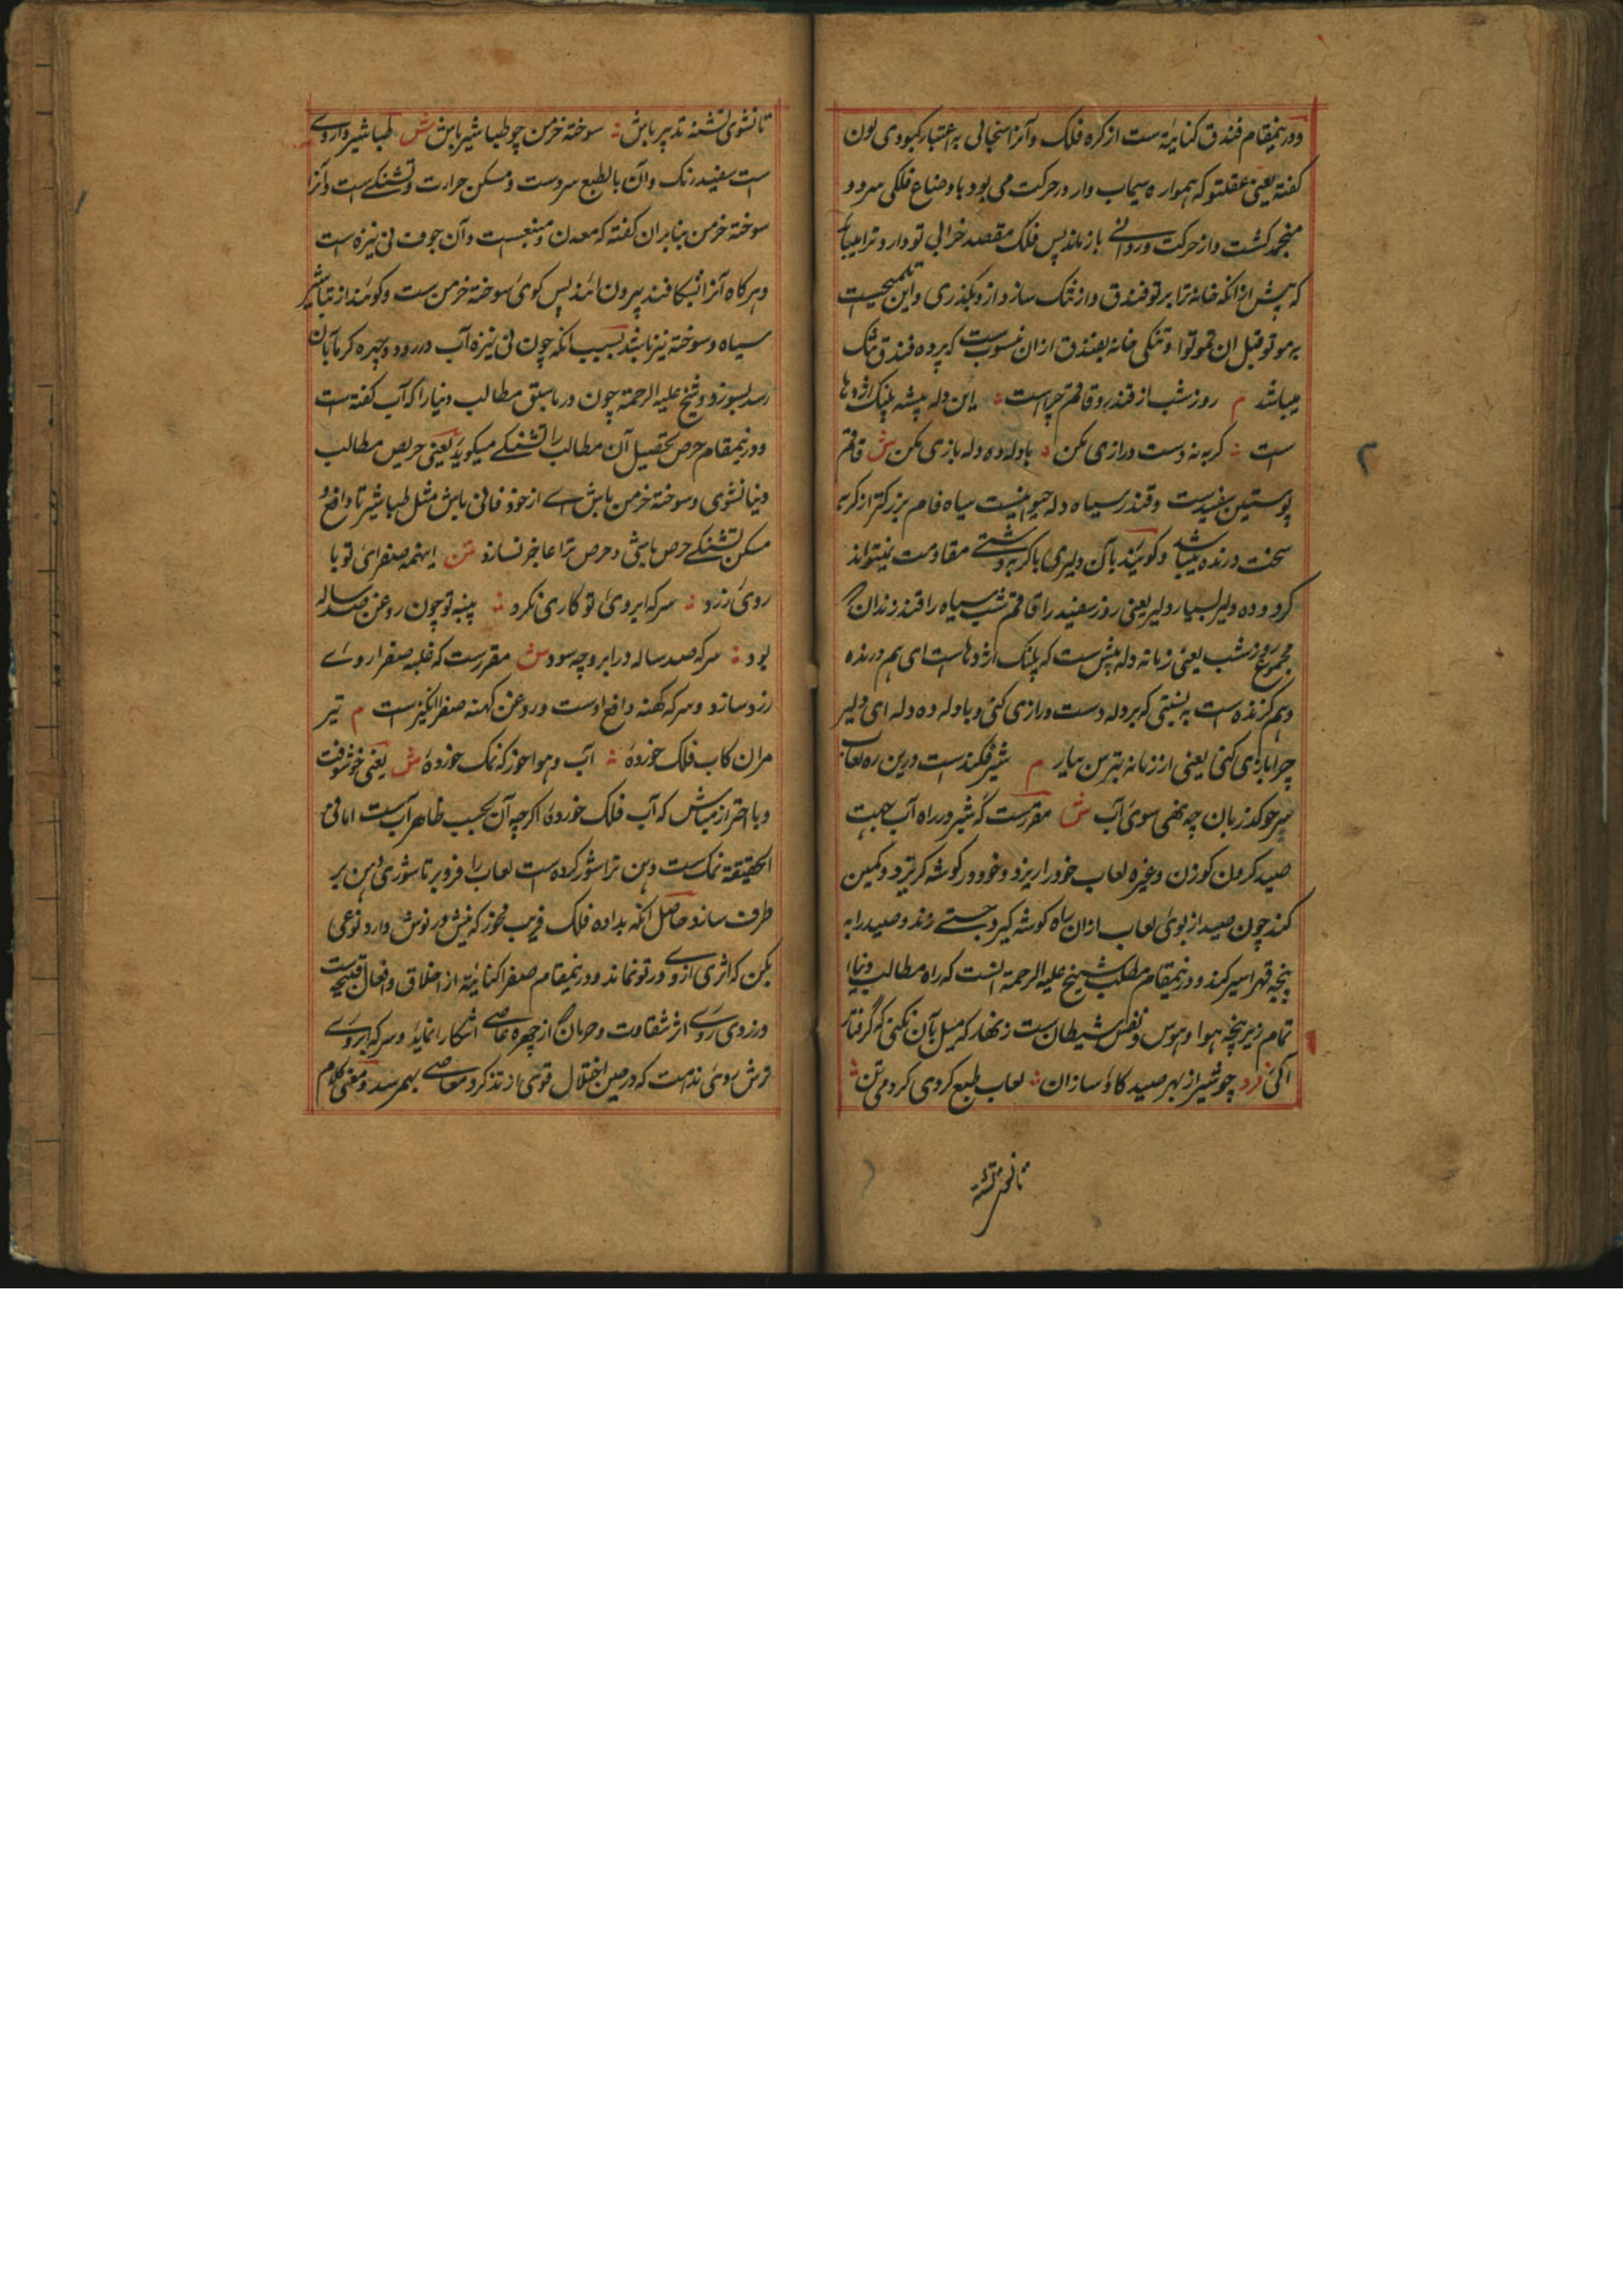 ودرینمقام فندق کنایهٔ ست از کره فلک وآنرا سنجابی به اعتبار کبودی لون
گفته یعنی عقلتو که همواره سیماب وار در حرکت می بود باوضاع فلکی سرد و
منجمد گشت واز حرکت ورد بازماند پس فلک مقصد خرابی تو دارد ترا میباید
که پیش ازانکه خانهٔ ترا برتو فندق وار تنگ سازد ازو بگذری واین تلمیحیست
به موتو قبل ان تموتوا وتنگی خانه بفندق ازان منسوب ست که پرده فندق تنگ
میباشد م روز شب از قندر وقاقم چراست : این دله پیشه پلنگ اژدها
ست : گربه نه دست درازی مکن : با دله ده دله بازی مکن ش قاقم
پوستین سفیدست وقندر سیاه دله حیوانیست سیاه فام بزرگتر از گربه
سخت درنده میباشد وگویند بآن دلیری با گربه دشتی مقاومت نمیتواند
کرد و ده دلیر بسیار دلیر یعنی روز سفید را قاقم شب سیاه را قندز دان
مجموع روز شب یعنی زمانه دله پیش ست که پلنگ اژدهاست ای هم درنده
وهم گزنده ست به نسبتی که بردله دست درازی کنی وبا دله ده دله ای دلیر
چرا بازی کنی یعنی از زمانه بترس بسیار م شیر فکندست درین ره لعاب
سر چو گوزنان چه نهی سوی آب ش مقررست که شیر در راه آب جهت
صید کردن گوزن وغیره لعاب خود را ریزد وخود در گوشه گریزد وکمین
کند چون صید از بوی لعاب ازان راه گوشه گیرد جستے زند وصید را به
پنجه قهر اسیر کند ودرینمقام مطلب شیخ علیه الرحمة آنست که راه مطالب دنیا
تمام زیر پنجه هوا وهوس ونفس شیطان ست زنهار که میل بآن نکنی که گرفتار
آئی فرد چو شیر از بهر صید گاو سازان : لعاب طبع کردی کردمی تن :
تا نشوی تشنه
تا نشوی تشنه تدبیر باش : سوخته خرمن چو طباشیر باش ش طباشیر داروے
ست سفید رنگ وآن بالطبع سردست ومسکن حرارت وتشنگے ست وآنرا
سوخته خرمن بنابران گفته که معدن ومنبعست وآن جوف نی نیزه است
وهر گاه آنرا بشکافند بیرون آید پس گوی سوخته خرمن ست وگویند از تباشیر
سیاه وسوخته نیز باشد بسبب آنکه چون نی نیزه آب درو رود وبهره گرما بآن
رسد بسوزد وشیخ علیه الرحمة چون در ماسبق مطالب دنیا را که آب گفته ست
ودرینمقام حرص تحصیل آن مطالب را تشنگے میگوید یعنی حریص مطالب
دنیا نشوی وسوخته خرمن باش اے از خود فانی باش مثل طباشیر تا دافع و
مسکن تشنگے حرص باشی وحرص ترا عاجز نسازد متن اینهمه صفرای تو با
روی زرد : سرکه ابروی تو کاری نکرد : پیه تو چون روغن صد ساله
بود : سرکه صد ساله در ابرو چه سود ش مقررست که غلبه صفرا روے
زرد سازد وسرکه کهنه دافع اوست وروغن کهنه صفرا انگیزست م تیر
مران کاب فلک خوردهٔ : آب وهوا خور که نمک خوردهٔ ش یعنی خوشوقت
وبا احتراز مباش که آب فلک خوردهٔ اگرچه آن بحسب ظاهر آب ست اما فی
الحقیقة نمک ست ودهن ترا شور کرده ست لعاب را فرو بر تا شوری دهن بر
طرف سازد حاصل آنکه بداده فلک فریب مخور که نیش در نوش دارد نوعی
بکن که اثری ازوے در تو نماند ودرینمقام صفرا کنایهٔ از اخلاق وافعال قبیحه ست
وزردی روے اثر شقاوت وحرمان از چهره عاصے آشکارا نماید وسرکه ابروے
ترش روی ندامت که در حین اختلال قوی از تذکر معاصے بهم رسد ومعنی کلام